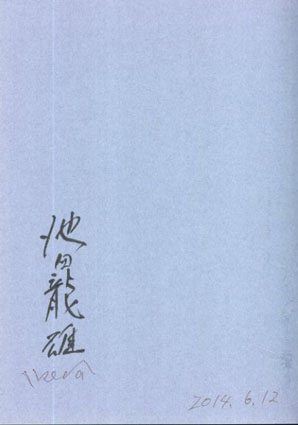 池田龍雄
Ikeda
2014.6.12